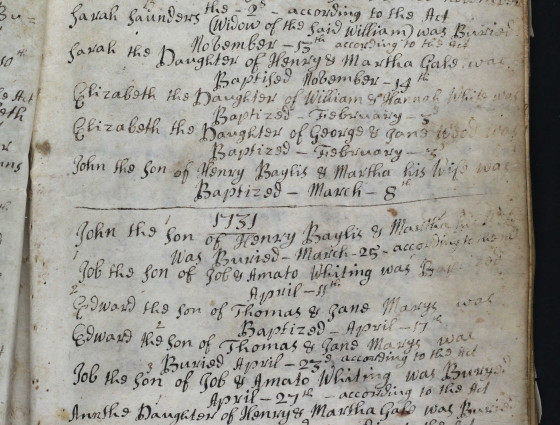 Sarah Saunders the - 9th - according to the Act
(Widow of the said William) was Buried
November - 13th according to the Act
Sarah the Daughter of Henry & Martha Gale was
Baptised November - 14th
Elizabeth the Daughter of William & Hannah White was
Baptized - February - 3d
Elizabeth the Daughter of George & Jane was
Baptized - February - 3d
John the Son of Henry Baylis & Martha his Wife was
Baptized - March - 8th
1731
John the Son of Henry Baylis & Martha his Wife
Was Buried - March - 25 - according to the Act
Job the Son of Job & Amato Whiting was Baptized
April - 11th
Edward the Son of Thomas & Jane Marys was
Baptized - April - 17th
Edward the Son of Thomas & Jane Marys was
Buried April - 23d according to the Act
Job the Son of Job & Amato Whiting was Buryed
April - 27th - according to the Act
Ann the Daughter of Henry & Martha Gale was Buried